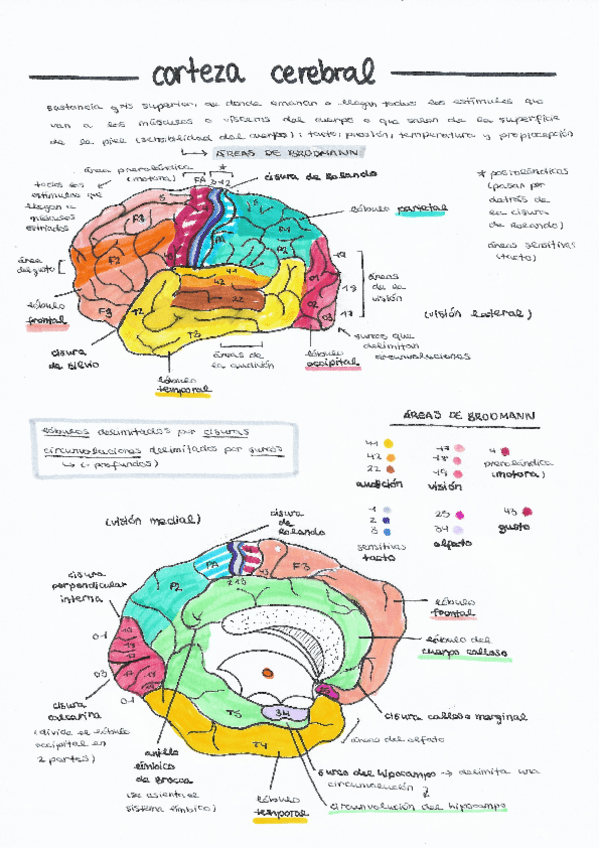 corteza cerebral
sustancia gris superior, de donde emanan o llegan todos los estímulos que
van a los músculos o vísceras del cuerpo o que salen de la superficie
de la piel (sensibilidad del cuerpo): tacto, presión, temperatura y propiocepción
ÁREAS DE BRODMANN
área prerolándica
(motora)
FA
3-1-2
*
cisura de Rolando
todos los
estímulos que
llegan a
músculos
estriados
* postrolándicas
(pasan por
detrás de
la cisura
de Rolando)
áreas sensitivas
(tacto)
lóbulo parietal
F3
F2
área
del gusto
lóbulo
frontal
F3
P1
P2
41
42
22
T2
T3
O1
O2
O3
19
18
17
áreas
de la
visión
(visión lateral)
surcos que
delimitan
circunvoluciones
cisura
de Silvio
áreas de
la audición
lóbulo
occipital
lóbulo
temporal
lóbulos delimitados por cisuras
circunvoluciones delimitadas por surcos
(- profundos)
ÁREAS DE BRODMANN
41
42
22
audición
17
18
19
visión
4
prerolándica
(motora)
1
2
3
sensitivas
tacto
25
34
olfato
43
gusto
(visión medial)
cisura
de
Rolando
cisura
perpendicular
interna
P2
PA
F3
lóbulo
frontal
lóbulo del
cuerpo calloso
O1
O3
cisura
calcarina
(divide el lóbulo
occipital en
2 partes)
anillo
límbico
de Broca
(se asienta el
sistema límbico)
T5
34
T4
cisura calloso marginal
áreas del olfato
surco del hipocampo → delimita una
circunvolución
circunvolución del hipocampo
lóbulo
temporal